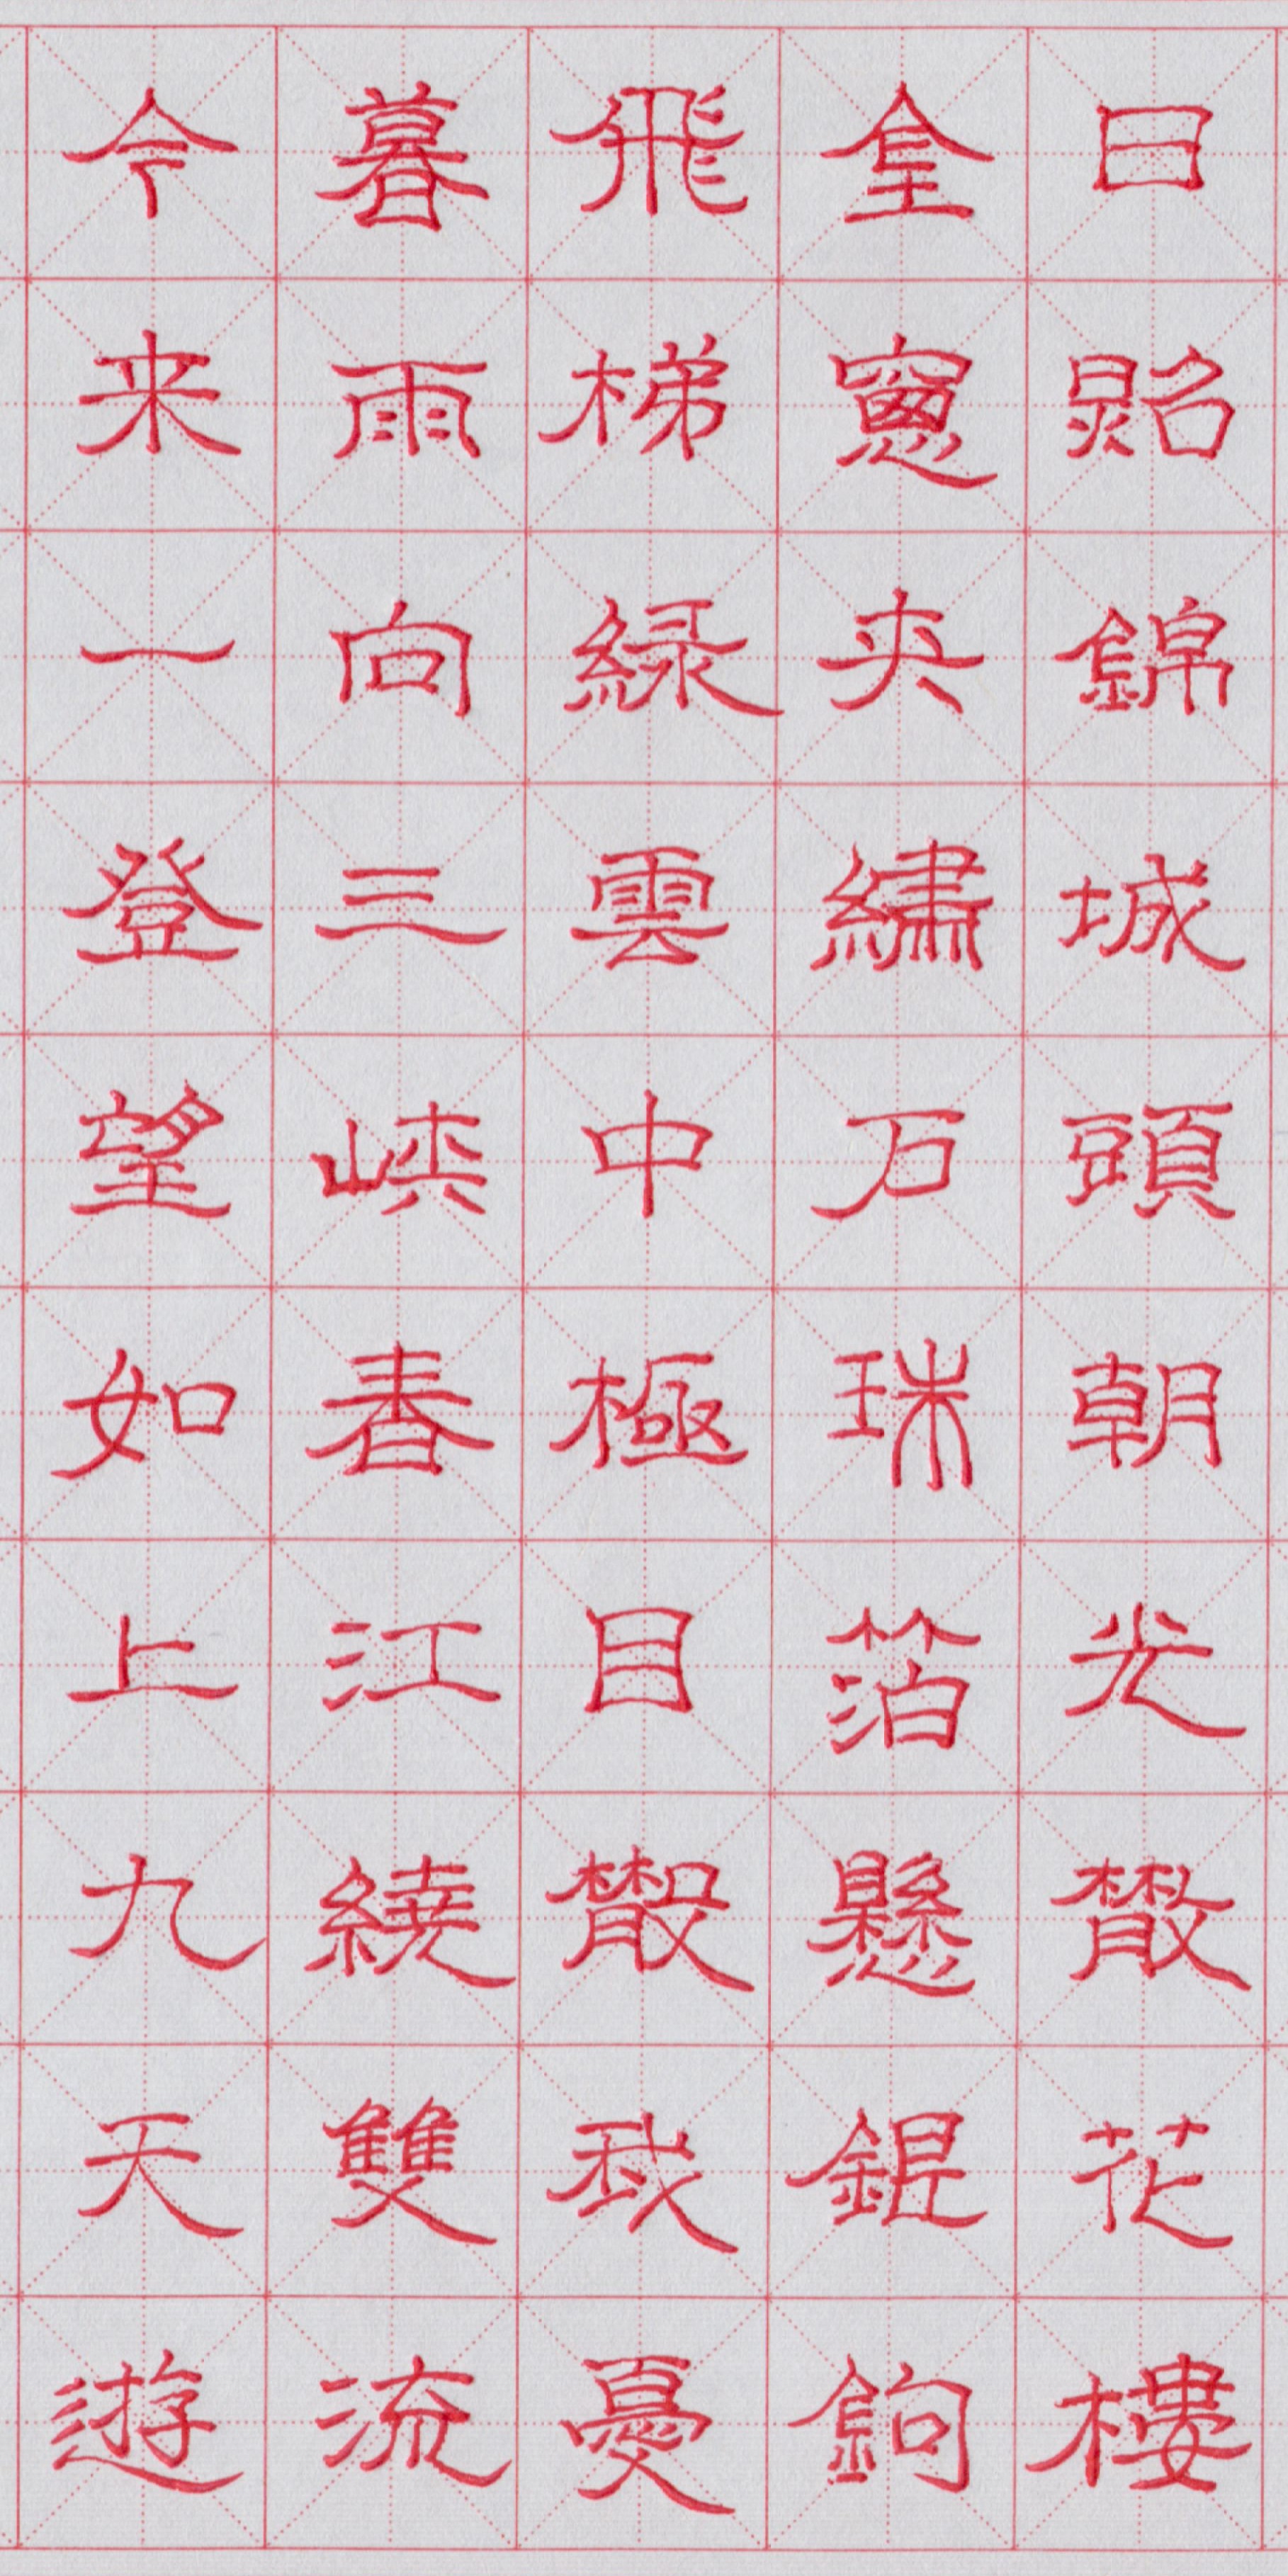 日照錦城頭朝光散花樓
金窻夾繡戶珠箔懸銀鉤
飛梯緑雲中極目散我憂
暮雨向三峽春江繞雙流
今来一登望如上九天遊